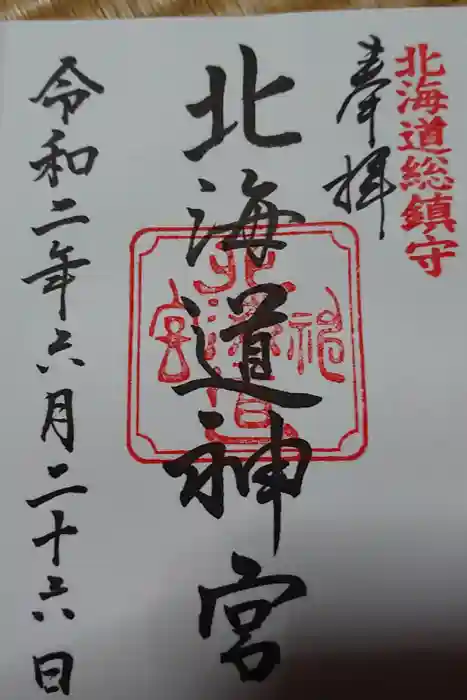 北海道総鎮守
奉拝
北海道神宮
令和二年六月二十六日